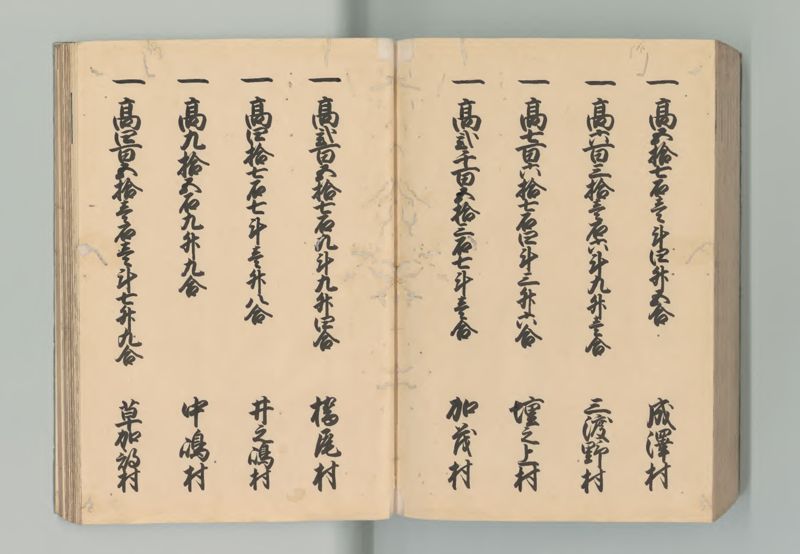 一 高五拾七石壱斗四升五合 成澤村
一 高六百三拾壱石六斗九升壱合 三渡野村
一 高七百六拾七石四斗三升六合 壇之上村
一 高弐千百五拾三石七斗壱合 加茂村
一 高弐百五拾七石九斗九升四合 尾村
一 高四拾七石七斗壱升八合 井之嶋村
一 高九拾五石九升九合 中嶋村
一 高四百五拾壱石壱斗七升九合 草加部村